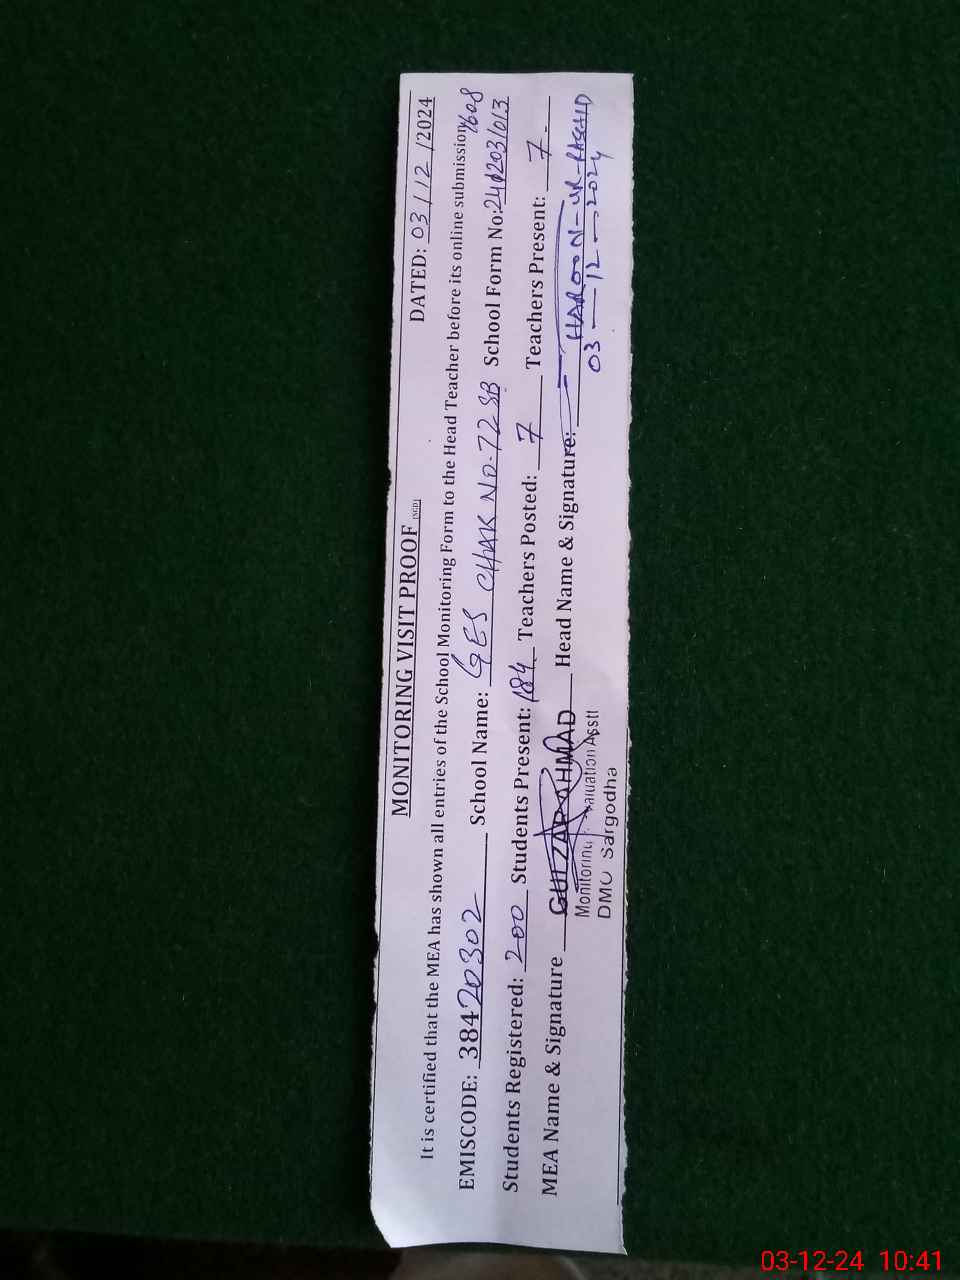 MONITORING VISIT PROOF (SGD) DATED: 03/12/2024
It is certified that the MEA has shown all entries of the School Monitoring Form to the Head Teacher before its online submission
EMISCODE: 38420302 School Name: GES CHAK NO-72 SB School Form No:
Students Registered: 200 Students Present: 184 Teachers Posted: 7 Teachers Present: 7
MEA Name & Signature GULZAR AHMAD Head Name & Signature: HAROON-UR-RASHID
Monitoring Evaluation Asstt
03-12-2024
DMO Sargodha
03-12-24 10:41